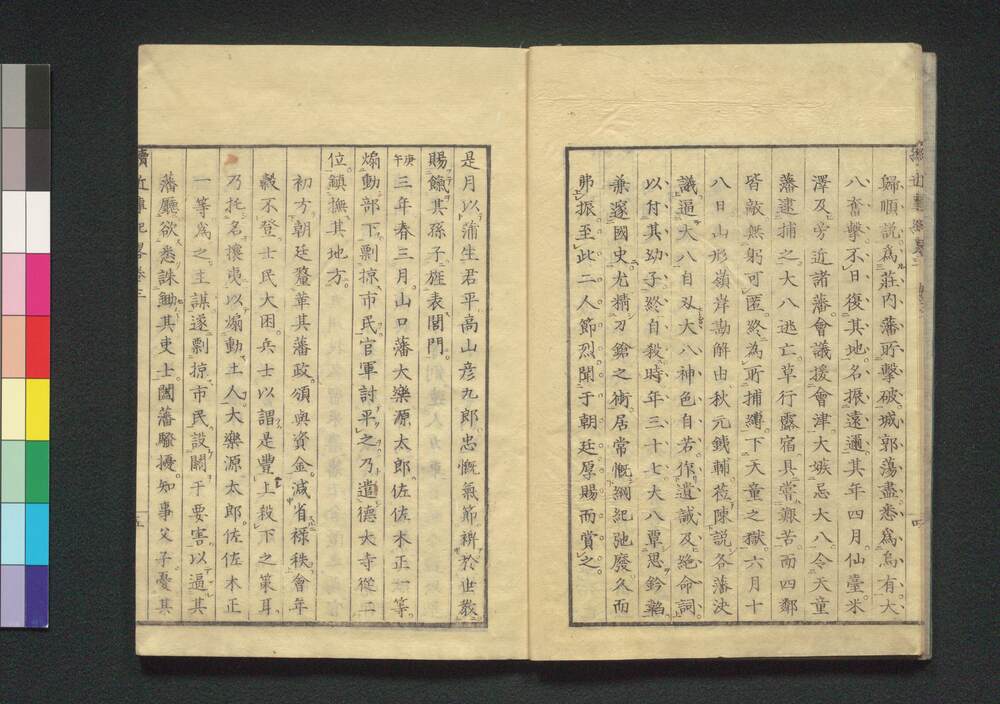 歸順說爲莊内藩所擊破城郭蕩盡悉爲烏有大
八奮擊不日復其地名振遠邇其年四月仙臺米
澤及旁近諸藩會議援會津大嫉忌大八令天童
藩逮捕之大八逃亡草行露宿具嘗艱苦而四鄰
皆敵無躬可匿終為所捕縛下天童之獄六月十
八日山形嶺岸勘解由秋元錢輔莅陳說各藩決
議逼大八自刃大八神色自若作遺誡及絶命詞
以付其幼子終自殺時年三十七大八覃思鈐韜
兼邃國史尤精刀鎗之術居常慨綱紀弛廢久而
弗振至此二人節烈聞于朝廷厚賜而賞之
是月以蒲生君平高山彦九郎忠慨氣節裨於世敎
賜餼其孫子旌表閭門
庚午三年春三月山口藩大樂源太郎佐佐木正一等
煽動部下剽掠市民官軍討平之乃遣德大寺從二
位鎮撫其地方
初方朝廷釐革其藩政頒與資金減省祿秩會年
穀不登士民大困兵士以謂是豐上殺下之策耳
乃托名攘夷以煽動土人大樂源太郎佐佐木正
一等爲之主謀遂剽掠市民設關于要害以逼其
藩廳欲悉誅鋤其吏士闔藩騷擾知事父子憂其
續近